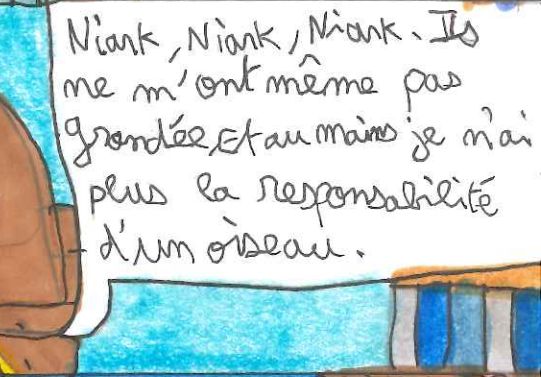 Niark, Niark, Niark. Ils
ne m'ont même pas
grondée, Et au mains je n'ai
plus la responsabilité
d'un oiseau.